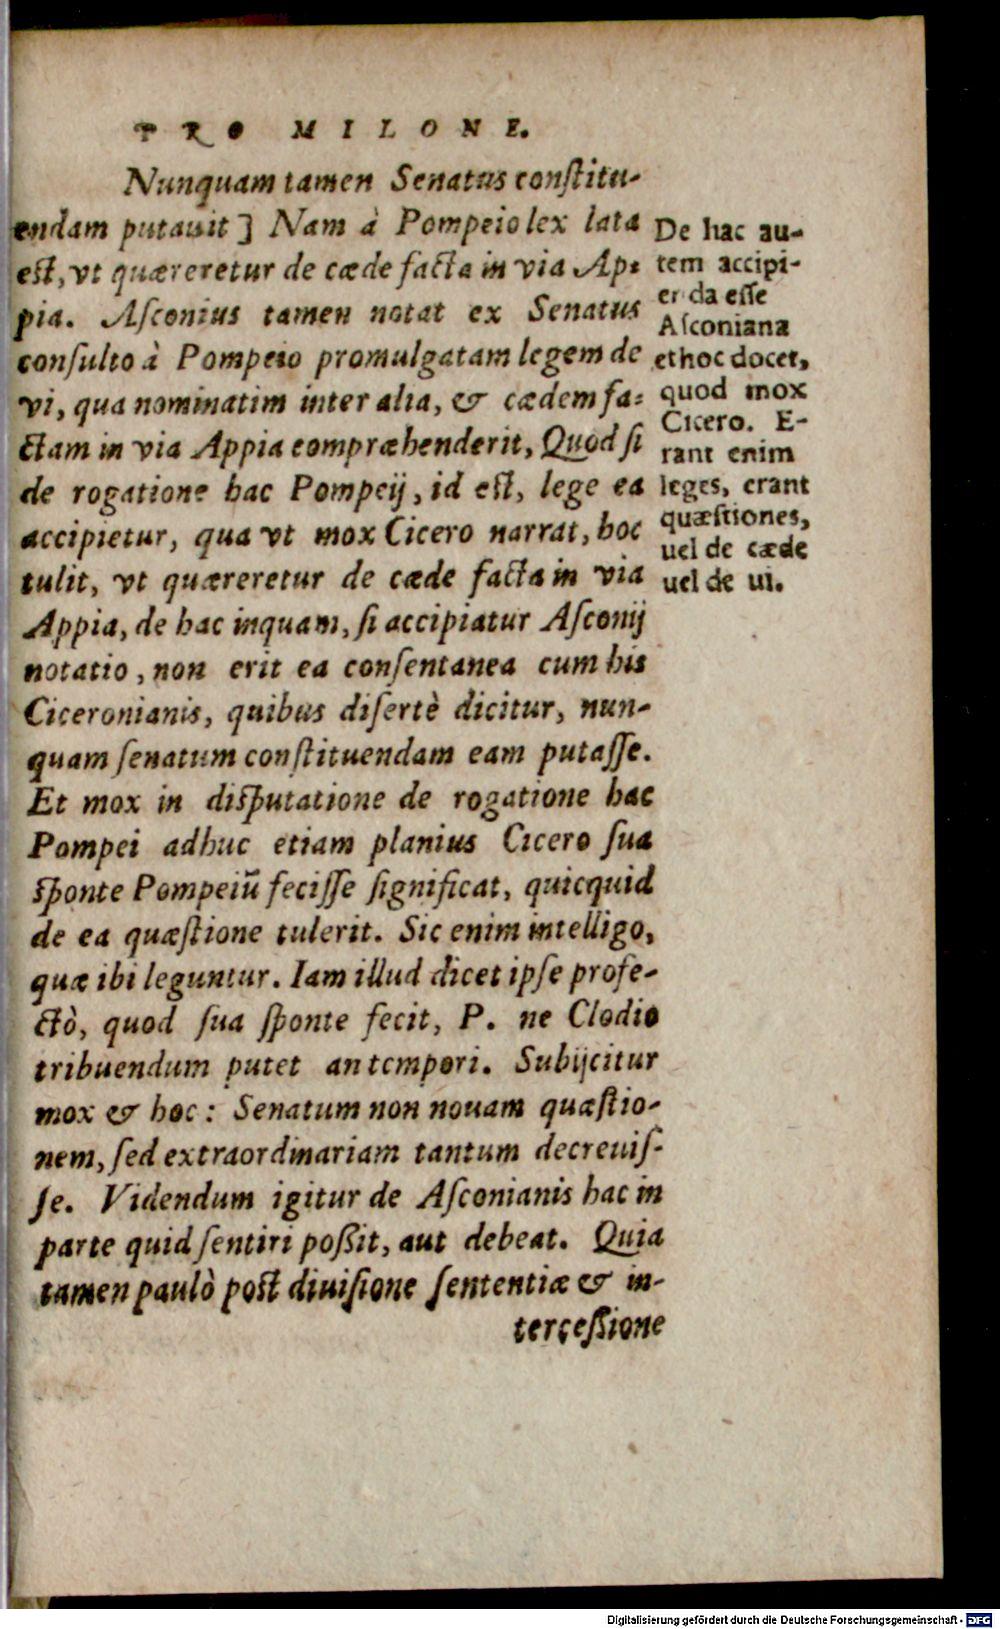 PRO MILONE.
Nunquam tamen Senatus conſtitu-
endam putauit] Nam à Pompeio lex lata
eſt, vt quæreretur de cæde facta in via Ap-
pia. Aſconius tamen notat ex Senatus
conſulto à Pompeio promulgatam legem de
vi, qua nominatim inter alia, & cædem fa-
ctam in via Appia compræhenderit, Quod ſi
de rogatione hac Pompeij, id eſt, lege ea
accipietur, qua vt mox Cicero narrat, hoc
tulit, vt quæreretur de cæde facta in via
Appia, de hac inquam, ſi accipiatur Aſconij
notatio, non erit ea conſentanea cum his
Ciceronianis, quibus diſertè dicitur, nun-
quam ſenatum conſtituendam eam putaſſe.
Et mox in diſputatione de rogatione hac
Pompei adhuc etiam planius Cicero ſua
ſponte Pompeiū feciſſe ſignificat, quicquid
de ea quæſtione tulerit. Sic enim intelligo,
quæ ibi leguntur. Iam illud dicet ipſe profe-
ctò, quod ſua ſponte fecit, P. ne Clodio
tribuendum putet an tempori. Subijcitur
mox & hoc: Senatum non nouam quæſtio-
nem, ſed extraordinariam tantum decreuiſ-
ſe. Videndum igitur de Aſconianis hac in
parte quid ſentiri poßit, aut debeat. Quia
tamen paulò poſt diuiſione ſententiæ & in-
terceßione
De hac au-
tem accipi-
enda eſſe
Aſconiana
et hoc docet,
quod mox
Cicero. E-
rant enim
leges, erant
quæſtiones,
uel de cæde
uel de ui.
Digitalisierung gefördert durch die Deutsche Forschungsgemeinschaft - DFG